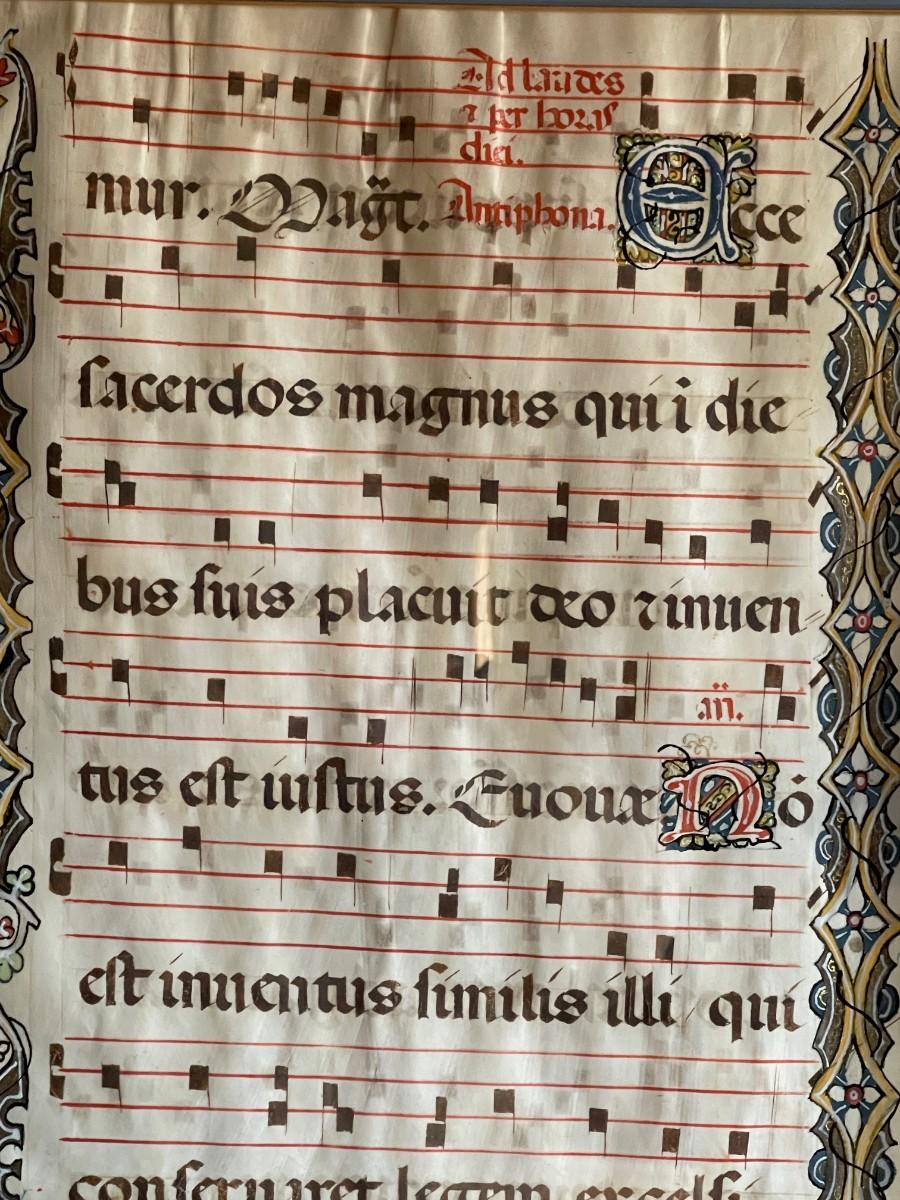 Ad laudes
⁊ per horas
diei.
mur. Magr̃. Antiphona. Ecce
sacerdos magnus qui ī die
bus suis placuit deo ⁊ inuen
tus est iustus. Euouæ añ. Nō
est inuentus similis illi qui
conseruaret legem excelsi